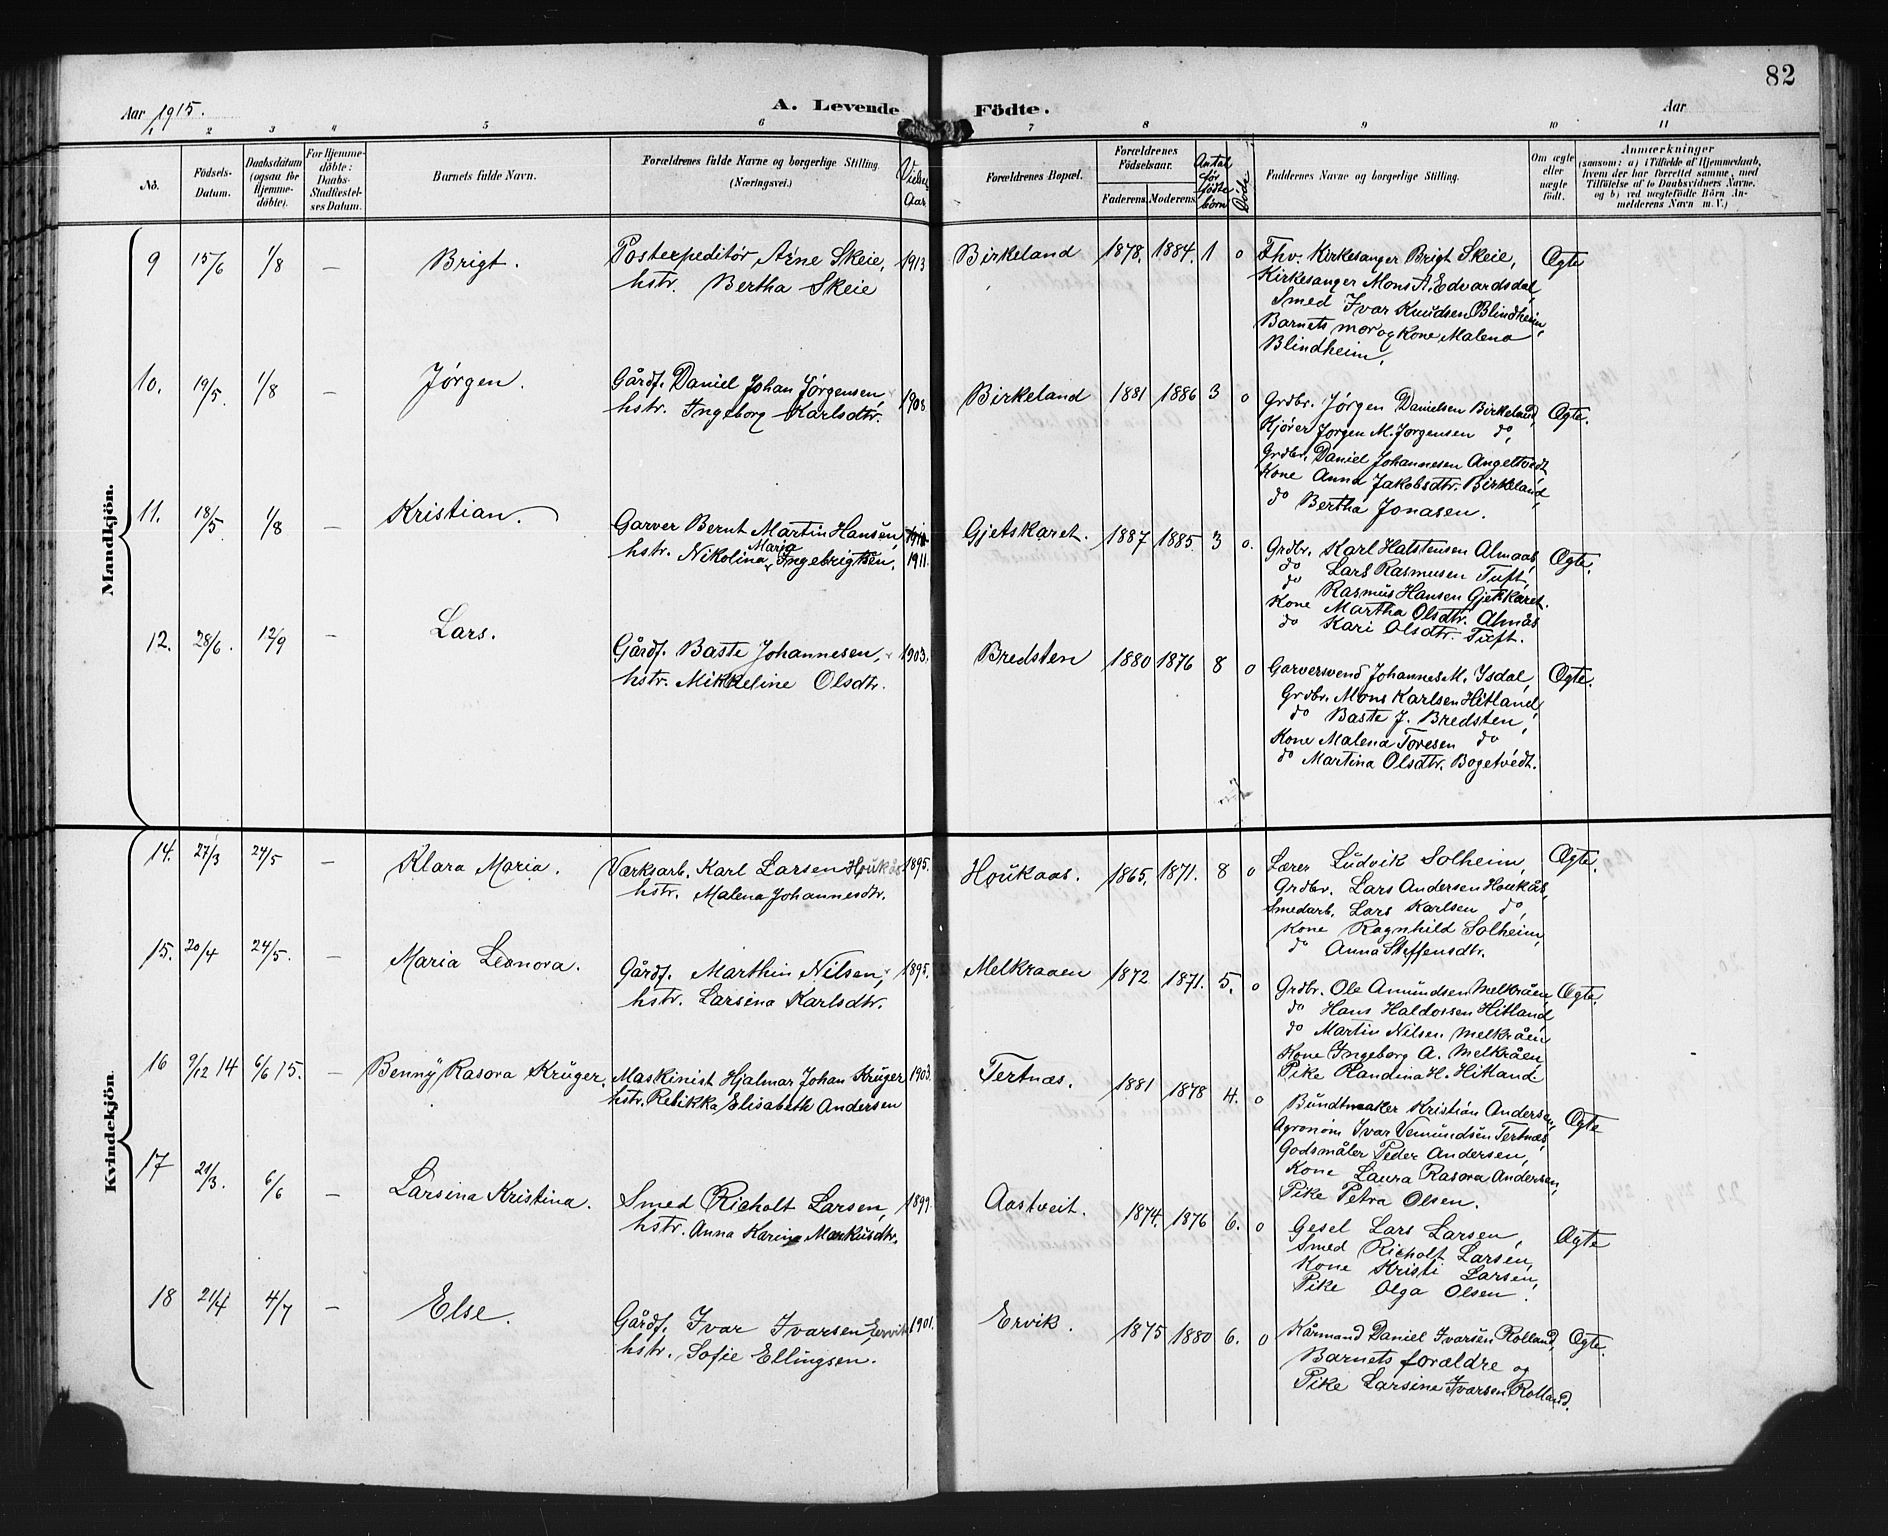 82
Aar 1915.
A. Levende Födte.
Aar
1 2 3 4 5 6 7 8 9 10 11
No.
Födsels-Datum.
Daabsdatum (ogsaa for Hjemme-döbte).
For Hjemme-döbte: Daabs-Stadfæstel-ses Datum.
Barnets fulde Navn.
Forældrenes fulde Navne og borgerlige Stilling. (Næringsvei.)
Vielses Aar
Forældrenes Bopæl.
Forældrenes Födselsaar.
Faderens. Moderens.
Antal før fødte børn
Døde
Faddernes Navne og borgerlige Stilling.
Om ægte eller uægte födt.
Anmærkninger
(saasom: a) i Tilfælde af Hjemmedaab,
hvem der har forrettet samme, med
Tilföielse af to Daabsvidners Navne,
og b) ved uægtefödte Börn An-
melderens Navn m. V.)
Mandkjön.
9 15/6 1/8 — Brigt. Postexpeditör Arne Skeie, 1913 Birkeland 1878. 1884. 1 0 Fhv. Kirkesanger Brigt Skeie, Ægte
hstr. Bertha Skeie
Kirkesanger Mons A. Edvardsdal,
Smed Ivar Knudsen Blindheim,
Barnets mor og Kone Malena
Blindheim.
10. 19/5. 1/8 — Jørgen. Gårdf. Daniel Johan Jørgensen, 1908 Birkeland 1881 1886 3 0 Grdbr. Jørgen Danielsen Birkeland, Ægte.
hstr. Ingeborg Karlsdtr.
Kjører Jørgen M. Jørgensen do,
Grdbr. Daniel Johannesen Angeltvedt
Kone Anna Jakobsdtr. Birkeland,
do Bertha Jonasen.
11. 18/5. 1/8 — Kristian. Garver Bernt Martin Hansen, Gjetskaret. 1887 1885. 3 0. Grdbr. Karl Halstensen Almaas, Ægte.
hstr. Nikolina Maria Ingebrigtsen. 1911.
do Lars Rasmusen Tuft,
do Rasmus Hansen Gjetskaret.
Kone Martha Olsdtr. Almås
do Kari Olsdtr. Tuft.
12. 28/6. 12/9 — Lars. Gårdf. Baste Johannesen, 1903. Bredsten 1880 1876 8 0 Garversvend Johannes M. Isdal, Ægte.
hstr. Mikkeline Olsdtr.
Grdbr. Mons Karlsen Hitland,
do Baste J. Bredsten,
Kone Malena Toresen do
do Martina Olsdtr. Bogetvedt.
Kvindekjön.
14. 27/3 24/5 — Klara Maria. Værksarb. Karl Larsen Houkås 1895. Houkaas. 1865. 1871. 8 0 Lærer Ludvik Solheim, Ægte.
hstr. Malena Johannesdtr.
Grdbr. Lars Andersen Houkås,
Smedarb. Lars Karlsen do,
Kone Ragnhild Solheim,
do Anna Steffensdtr.
15. 20/4 24/5. — Maria Leonora. Gårdf. Marthin Nilsen, 1895. Melkraaen 1872 1871. 5. 0 Grdbr. Ole Amundsen Melkråen, Ægte.
hstr. Larsina Karlsdtr.
do Hans Haldorsen Hitland,
do Martin Nilsen Melkråen
Kone Ingeborg A. Melkråen,
Pike Randina H. Hitland
16 9/12 14 6/6 15. — Benny Rasora Krüger. Maskinist Hjalmar Johan Krüger 1903. Tertnæs. 1881 1878 4. 0 Bundtmaker Kristian Andersen, Ægte
hstr. Rebikka Elisabeth Andersen
Agronom Ivar Vemundsen Tertnæs,
Godsmåler Peder Andersen,
Kone Laura Rasora Andersen,
Pike Petra Olsen.
17 21/3. 6/6 — Larsina Kristina. Smed Richolt Larsen, 1899. Aastveit. 1874. 1876 6. 0 Gesel Lars Larsen, Ægte
hstr. Anna Karina Markusdtr.
Smed Richolt Larsen,
Kone Kristi Larsen,
Pike Olga Olsen.
18 21/4 4/7 — Else. Gårdf. Ivar Ivarsen Ervik 1901. Ervik. 1875 1880 6. 0 Kårmand Daniel Ivarsen Rolland, Ægte.
hstr. Sofie Ellingsen.
Barnets forældre og
Pike Larsina Ivarsen Rolland.